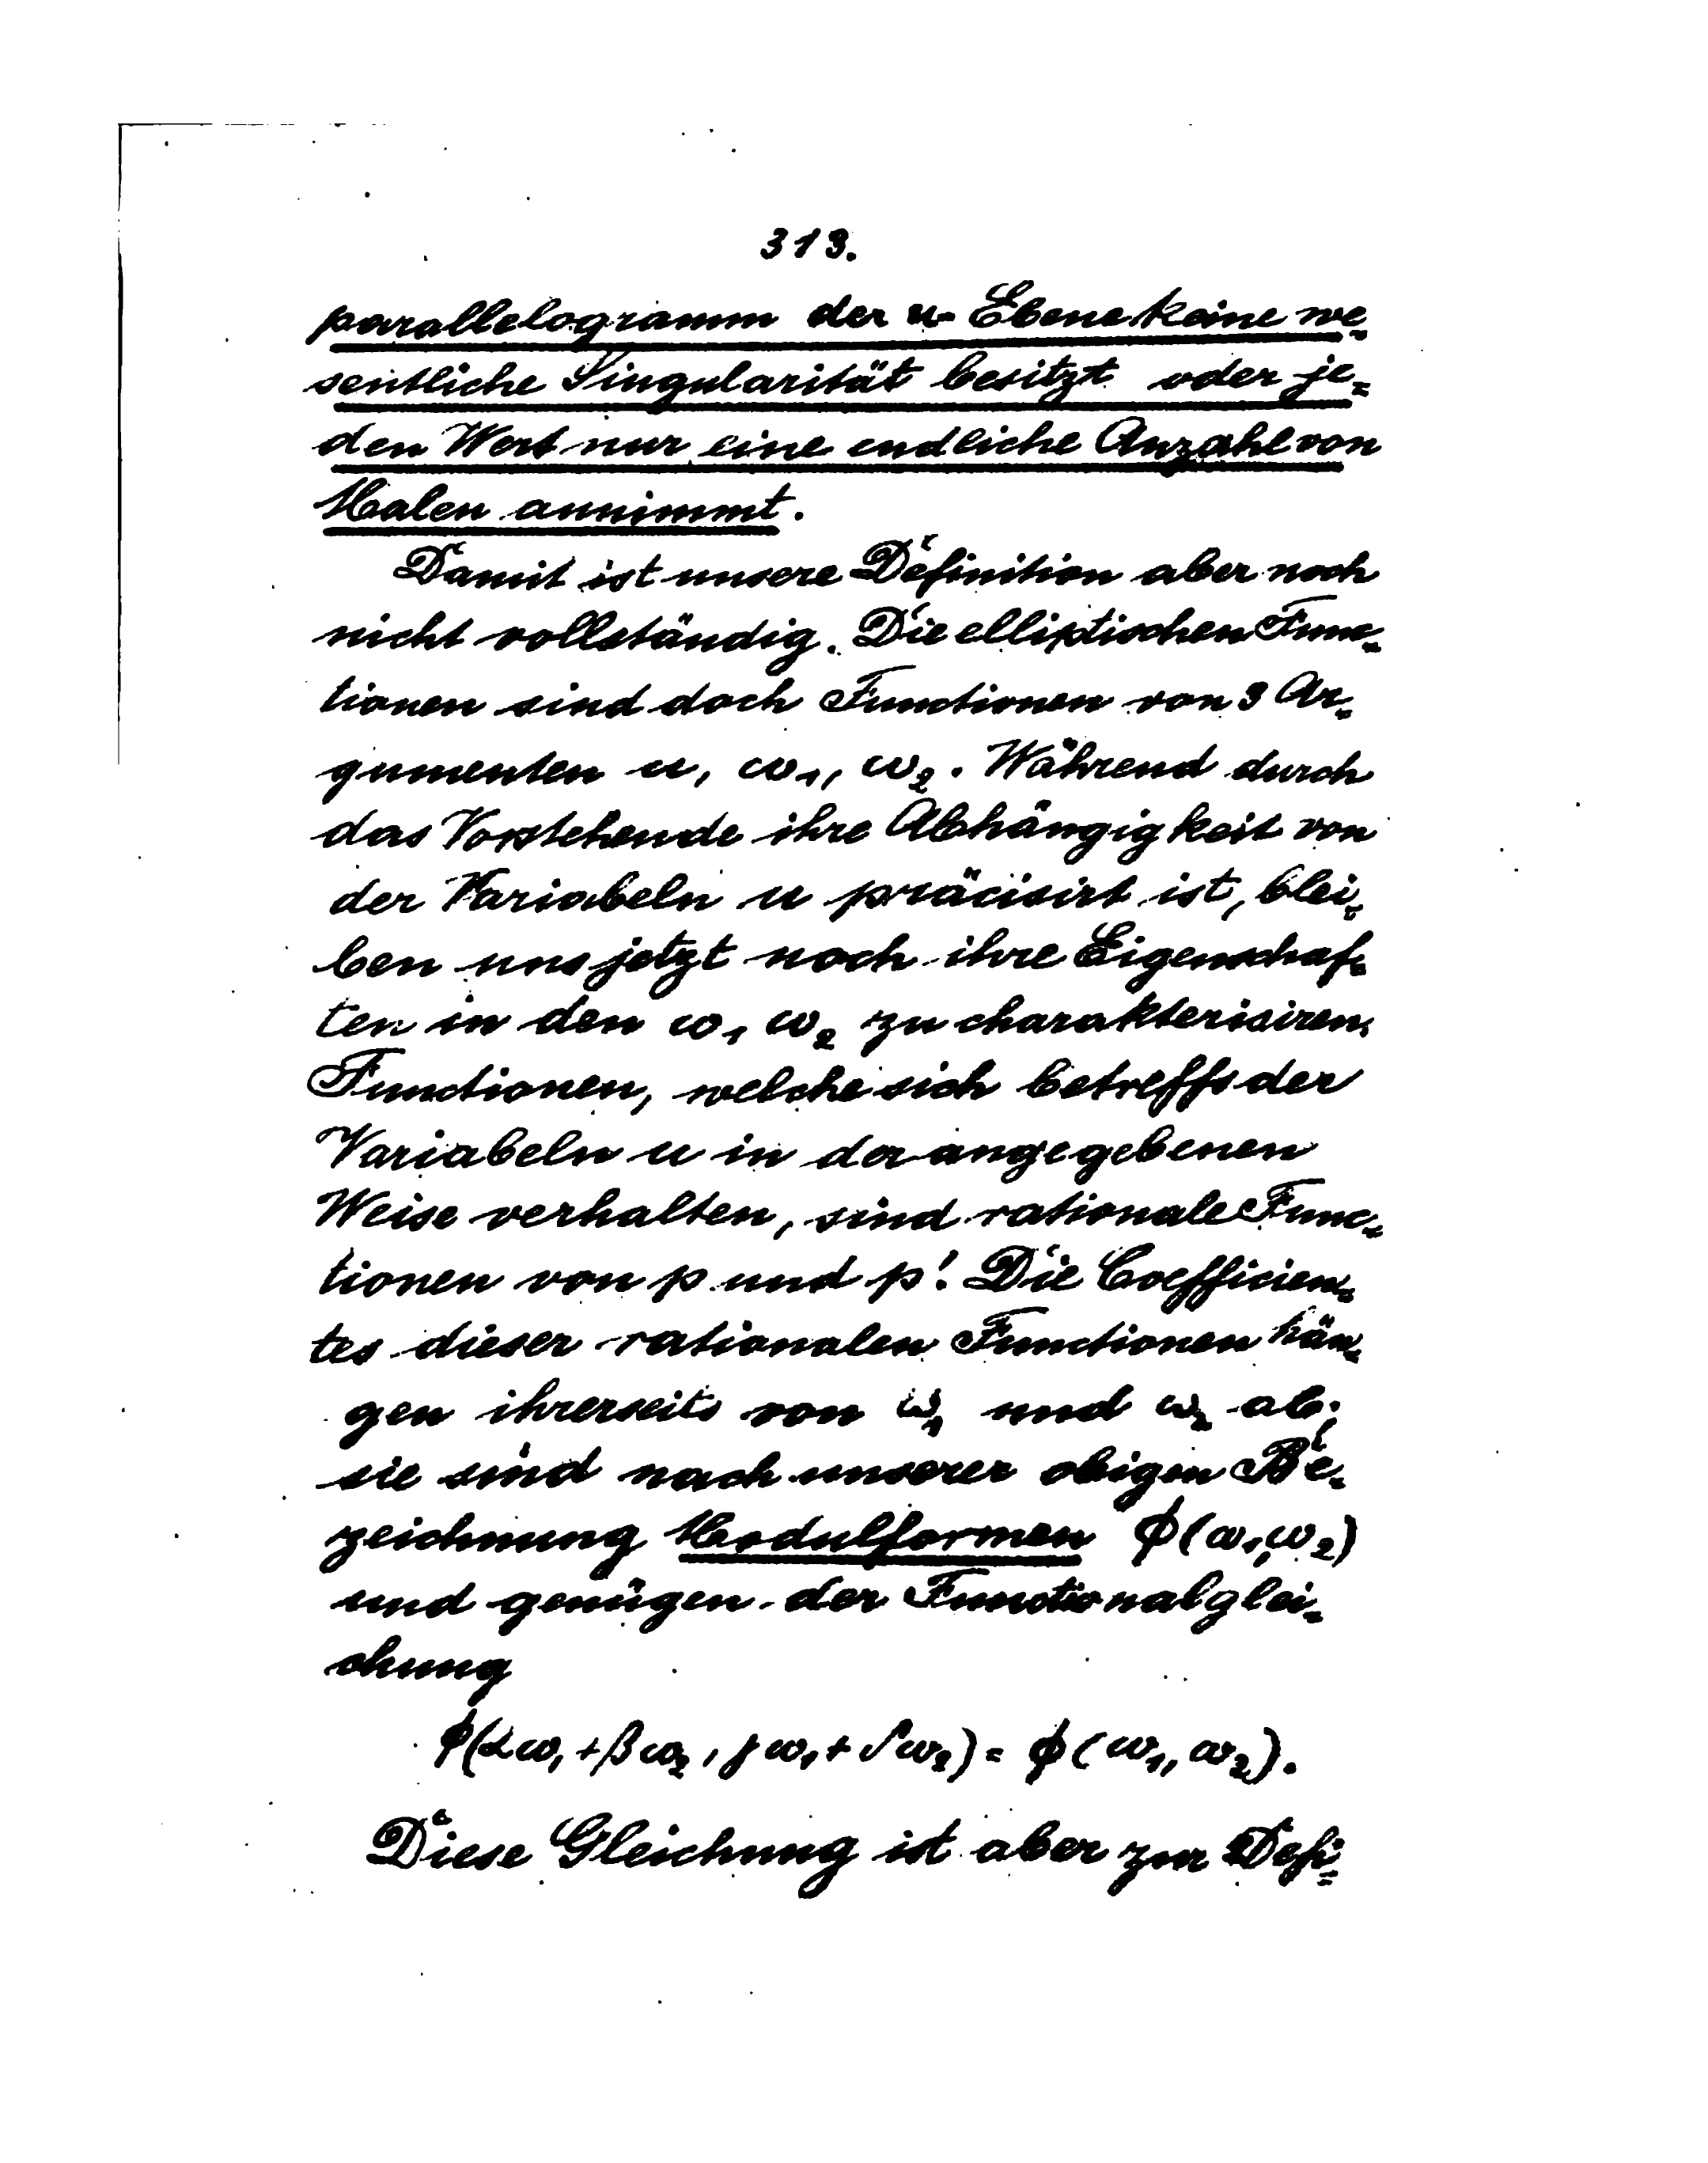 313.
parallelogramm der u-Ebene keine we-
sentliche Singularität besitzt oder je-
den Wert nur eine endliche Anzahl von
Malen annimmt.
Damit ist unsere Definition aber noch
nicht vollständig. Die elliptischen Func-
tionen sind doch Functionen von 3 Ar-
gumenten u, ω₁, ω₂. Während durch
das Vorstehende ihre Abhängigkeit von
der Variabeln u präcisirt ist, blei-
ben uns jetzt noch ihre Eigenschaf-
ten in den ω₁ ω₂ zu charakterisiren.
Functionen, welche sich betreffs der
Variabeln u in der angegebenen
Weise verhalten, sind rationale Func-
tionen von p und p'. Die Coefficien-
tes dieser rationalen Functionen hän-
gen ihrerseits von ω₁ und ω₂ ab;
sie sind nach unserer obigen Be-
zeichnung Modulformen ϕ(ω₁,ω₂)
und genügen der Functionalglei-
chung
ϕ(αω₁ + βω₂, γω₁ + δω₂) = ϕ(ω₁, ω₂).
Diese Gleichung ist aber zur Defi-